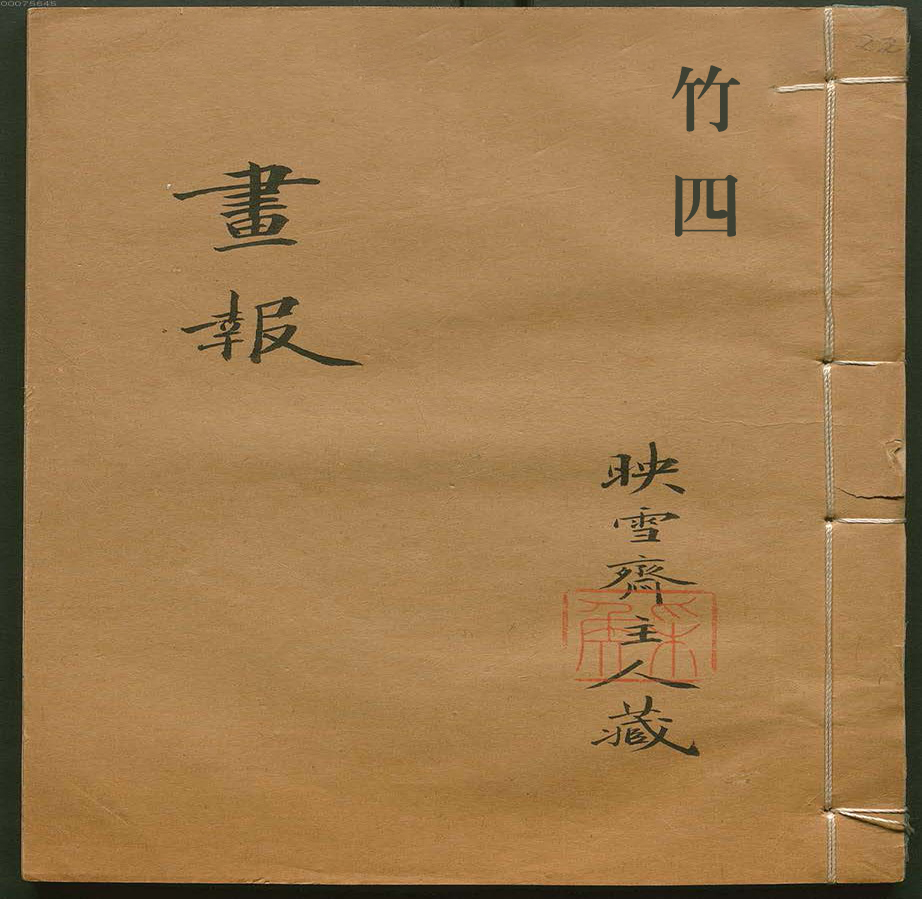 00075645
竹四
映雪齋主人藏
畫報